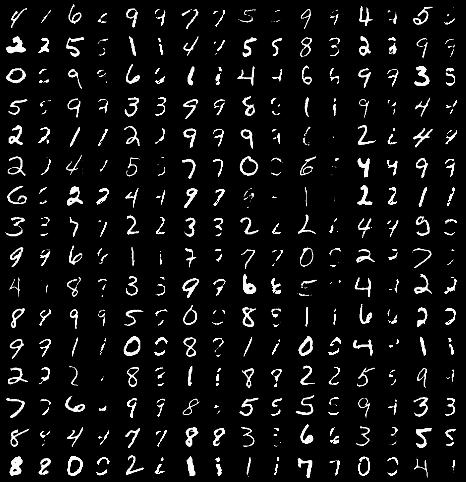 4 6 9 9 7 7 5 9 9 4 5
2 2 5 5 1 1 4 5 5 8 3 2 2 9 9
0 9 9 6 1 1 4 4 6 6 9 9 3 5
5 9 9 3 3 9 9 8 1 1 9 4 4
2 2 1 1 2 2 9 9 9 2 4 4
2 4 5 7 7 0 6 4 4 9 9
6 2 2 4 4 9 9 1 2 2 1 1
3 3 7 7 2 2 3 3 2 2 4 4 9
9 9 6 1 1 7 7 7 7 0 2 7
4 8 3 3 9 9 6 6 5 4 2 2
8 8 9 9 5 0 8 8 1 1 6 2 2
9 9 1 1 0 0 8 1 1 0 0 4 1
2 2 2 8 3 1 1 8 8 2 2 5 5 9
7 7 6 9 9 8 5 5 5 5 9 3 3
8 8 4 4 7 7 8 8 3 6 6 3 3 5 5
8 8 0 0 2 1 1 1 7 7 0 0 4